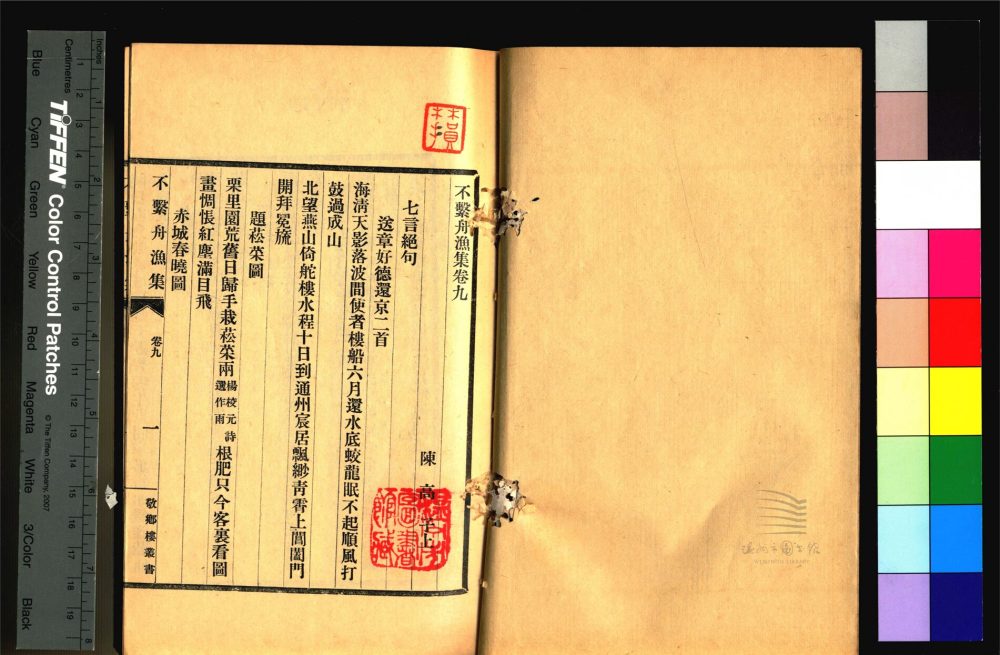 不繫舟漁集卷九
陳高子上
七言絕句
送章好德還京二首
海淸天影落波間使者樓船六月還水底蛟龍眠不起順風打
鼓過成山
北望燕山倚舵樓水程十日到通州宸居飄緲靑霄上閶闔門
開拜冕旒
題菘菜圖
栗里園荒舊日歸手栽菘菜兩楊校元詩選作雨根肥只今客裏看圖
畫惆悵紅塵滿目飛
赤城春曉圖
不繫舟漁集
卷九
一
敬鄉樓叢書
溫州市圖書館
WENZHOU LIBRARY
Inches
Centimetres
TIFFEN® Color Control Patches
© The Tiffen Company, 2007
Blue
Cyan
Green
Yellow
Red
Magenta
White
3/Color
Black